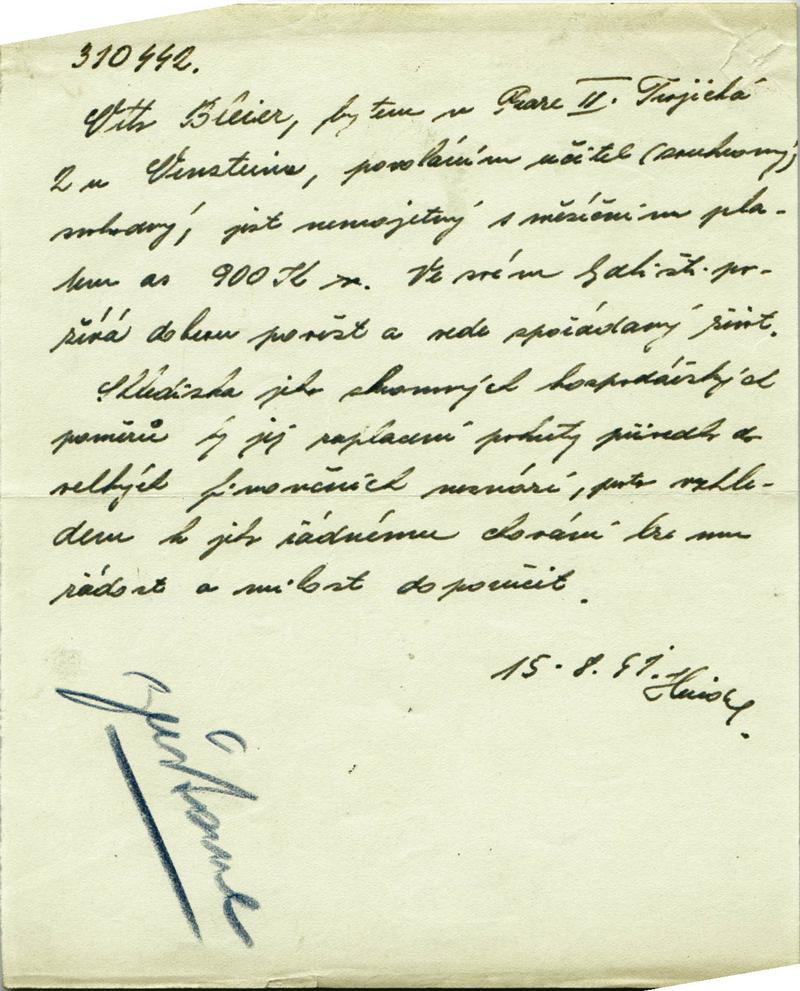 310442.
Otto Bleier, bytem v Praze II. Trojická
2 u Vinsteina, povoláním učitel (soukromý)
svobodný, jest nemajetný s měsíčním pla-
tem as 900 K. Ve svém bydlišti po-
žívá dobrou pověst a vede spořádaný život.
S hlediska jeho skromných hospodářských
poměrů by jej zaplacení pokuty přivedlo do
velkých finančních nesnází, proto vzhle-
dem k jeho řádnému chování lze mu
žádost o milost doporučit.
15.8.41.